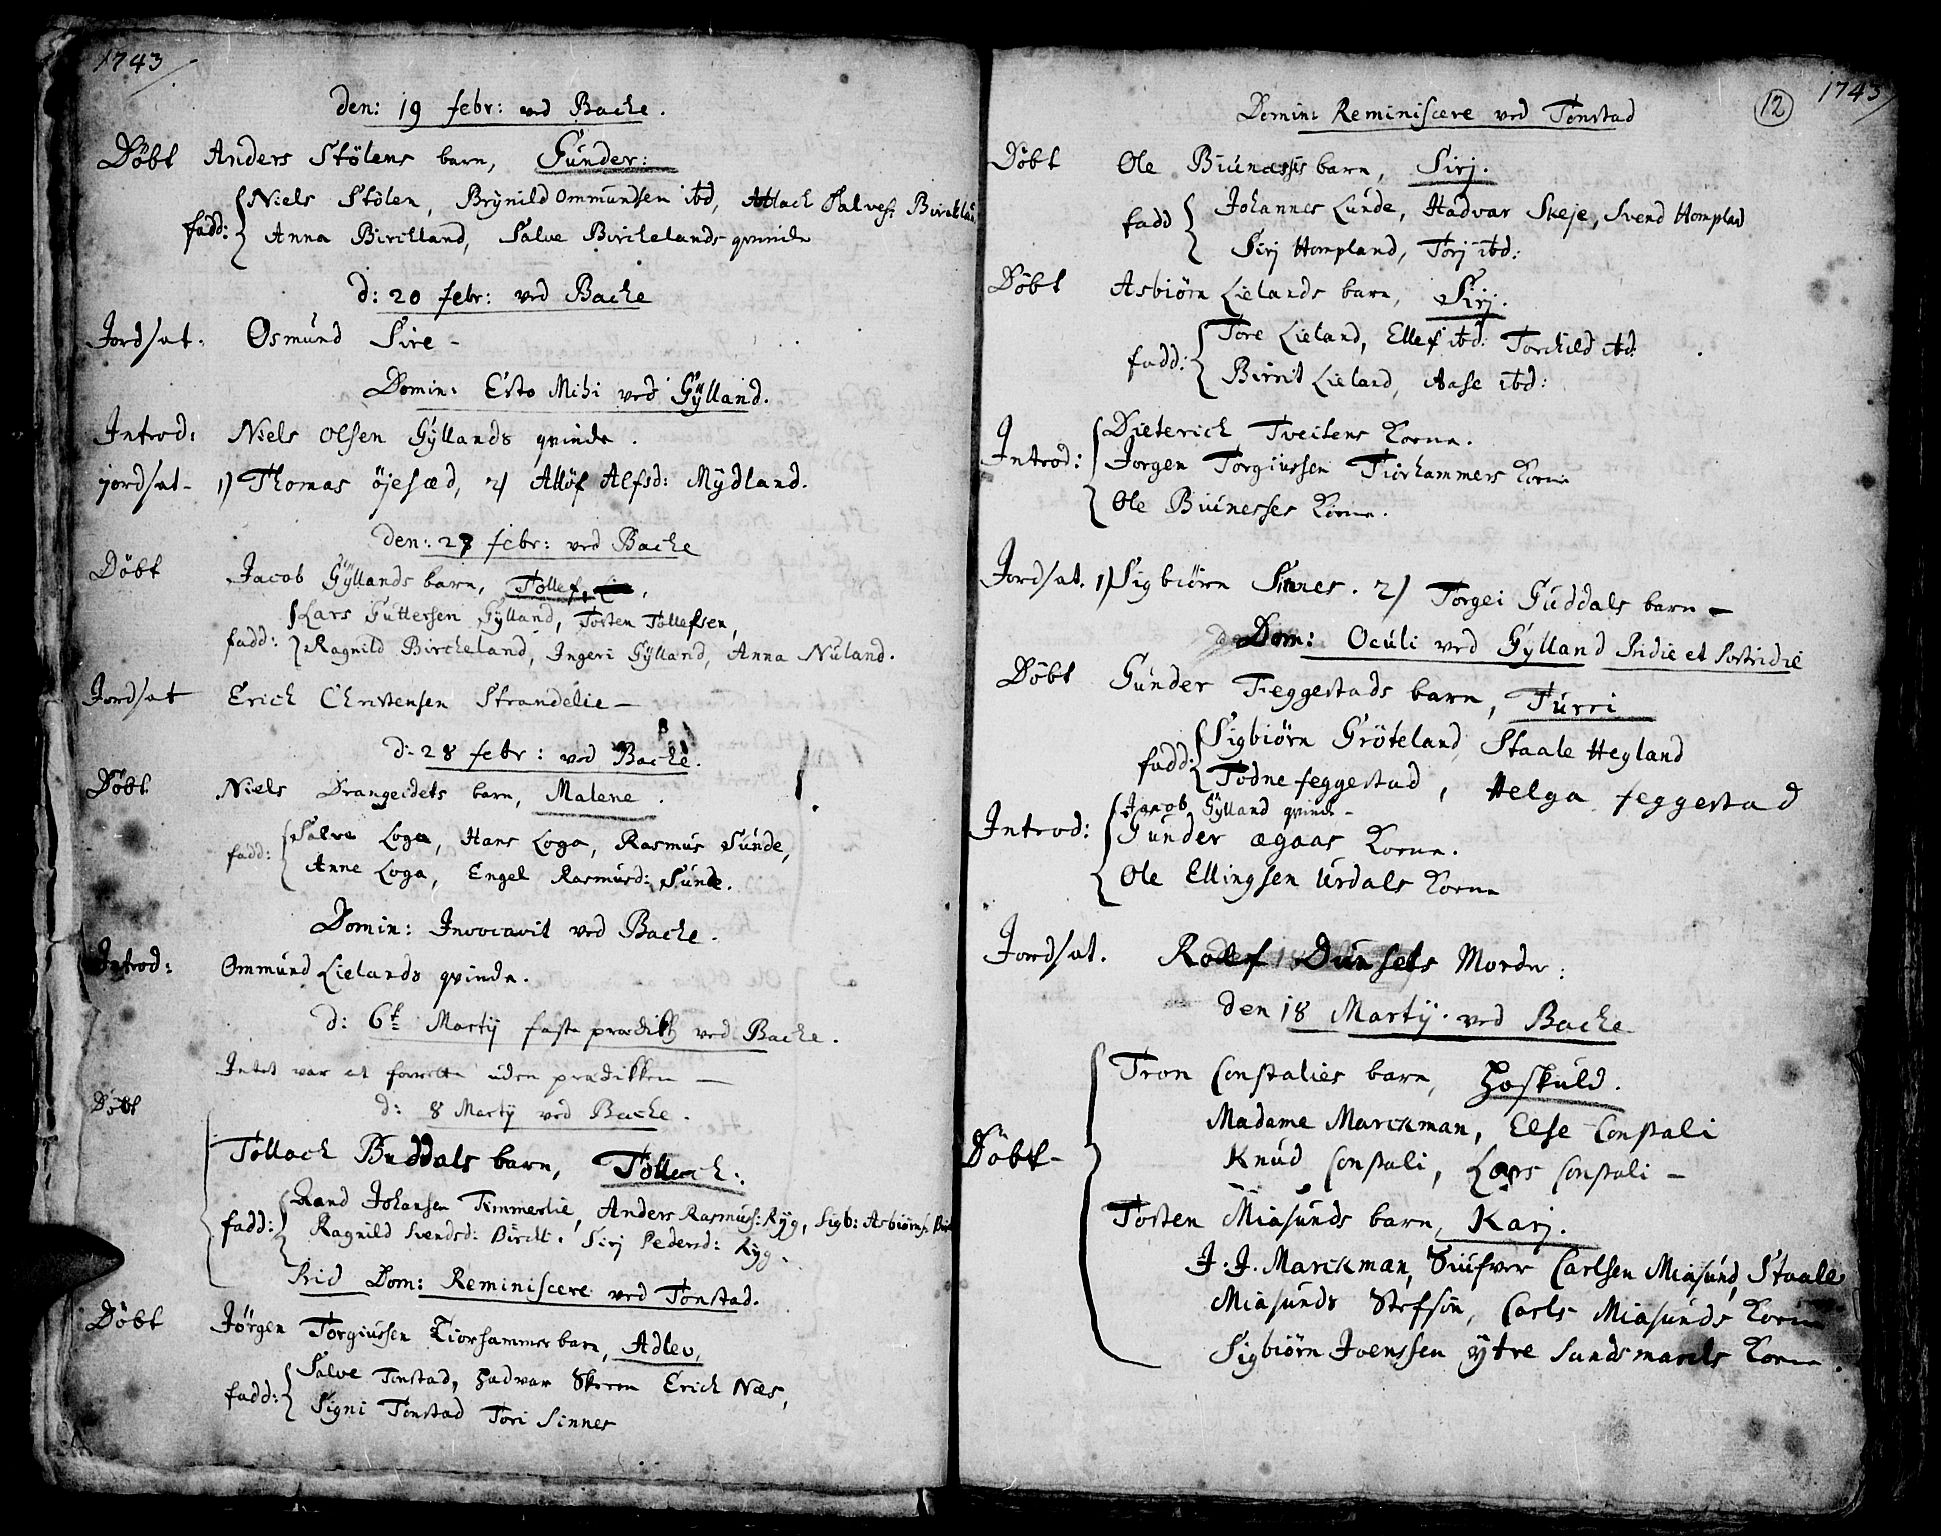 1743
den: 19 febr: ved Bache.
Döbt Anders Stölens barn, Gunder:
fadd: Niels Stölen, Brÿnild Ommundsen ibd, Atlach Salves:
Anna Birckland, Salve Birckelands qvinde
d: 20 febr: ved Bache
Jordsat: Osmund Sire -
Domin: Esto Mihi ved Gÿlland.
Introd: Niels Olsen Gÿllands qvinde.
jordsat- 1) Thomas öjesæd, 2) Atlöf Alfsd: Mÿdland.
den: 27 febr: ved Bache
Döbt Jacob Gÿllands barn, Tollef,
fadd: Lars Guttersen Gÿlland, Tosten Tollefsen,
Ragnild Bircheland, Ingeri Gÿlland, Anna Nuland.
Jordsat Erich Christensen Strandelie -
d: 28 febr: ved Bache.
Döbt Niels Drangeidets barn, Malene.
fadd: Salve Loga, Hans Loga, Rasmus Sunde,
Anne Loga, Engel Rasmusd: Sunde.
Domin: Invocavit ved Bache.
Introd: Ommund Lielands qvinde.
d: 6te Martÿ faste prædik ved Bache.
Intet var at forrette uden prædikken -
d: 8 Martÿ ved Bache.
Döbt
Tollach Buddals barn, Tollach:
fadd: Rand Johansen Timmerlie, Anders Rasmuss: Rÿg, Sigb: Asbiörns:
Ragnild Svendsd: Birckl: Sirj Pedersd: Rÿg.
Prid Dom: Reminiscere ved Tonstad.
Döbt Jörgen Torgiussen Tiorhammer barn, Adlev,
fadd: Salve Tonstad, Hadvar Skreen Erich Næs,
Signi Tonstad Tori Sinnes
12
1743
Domin: Reminiscere ved Tonstad
Döbt Ole Biunæssis barn, Sirj.
fadd Johannes Lunde, Hadvar Skeje, Svend Hompland
Sirj Hompland, Torj ibd:
Döbt Asbiörn Lielands barn, Sirj.
fadd: Tore Lieland, Ellef ibd: Torchild ibd
Birrit Lieland, Aase ibd:
Introd: Dieterich Tveitens Kone.
Jorgen Torgiussen Tiorhammers Kone
Ole Biunesses Kone.
Jordsat. 1) Sigbiörn Sinnes. 2) Torgei Guddals barn -
Dom: Oculi ved Gÿlland Pridie et Postridie
Döbt Gunder Feggestads barn, Turri
fadd: Sigbiörn Gröteland, Staale Hegland
Todne feggestad, Helga feggestad
Jacob Gÿlland qvinde -
Introd: Gunder ægaas Kone.
Ole Ellingsen Urdals Kone
Jordsat. Rolef Dunsets Moder:
den 18 Martÿ. ved Bache
Tron Constalies barn, Hoskuld.
Madame Marckman, Else Constali
Döbt- Knud Constali, Lars Constali -
Tosten Miasunds barn, Karj.
J. J. Marckman, Siufver Carlsen Miasund, Staale
Miasunds Stefsön, Carls Miasunds Kone
Sigbiörn Ivenssen ÿtre Sandsmarcks Kone.